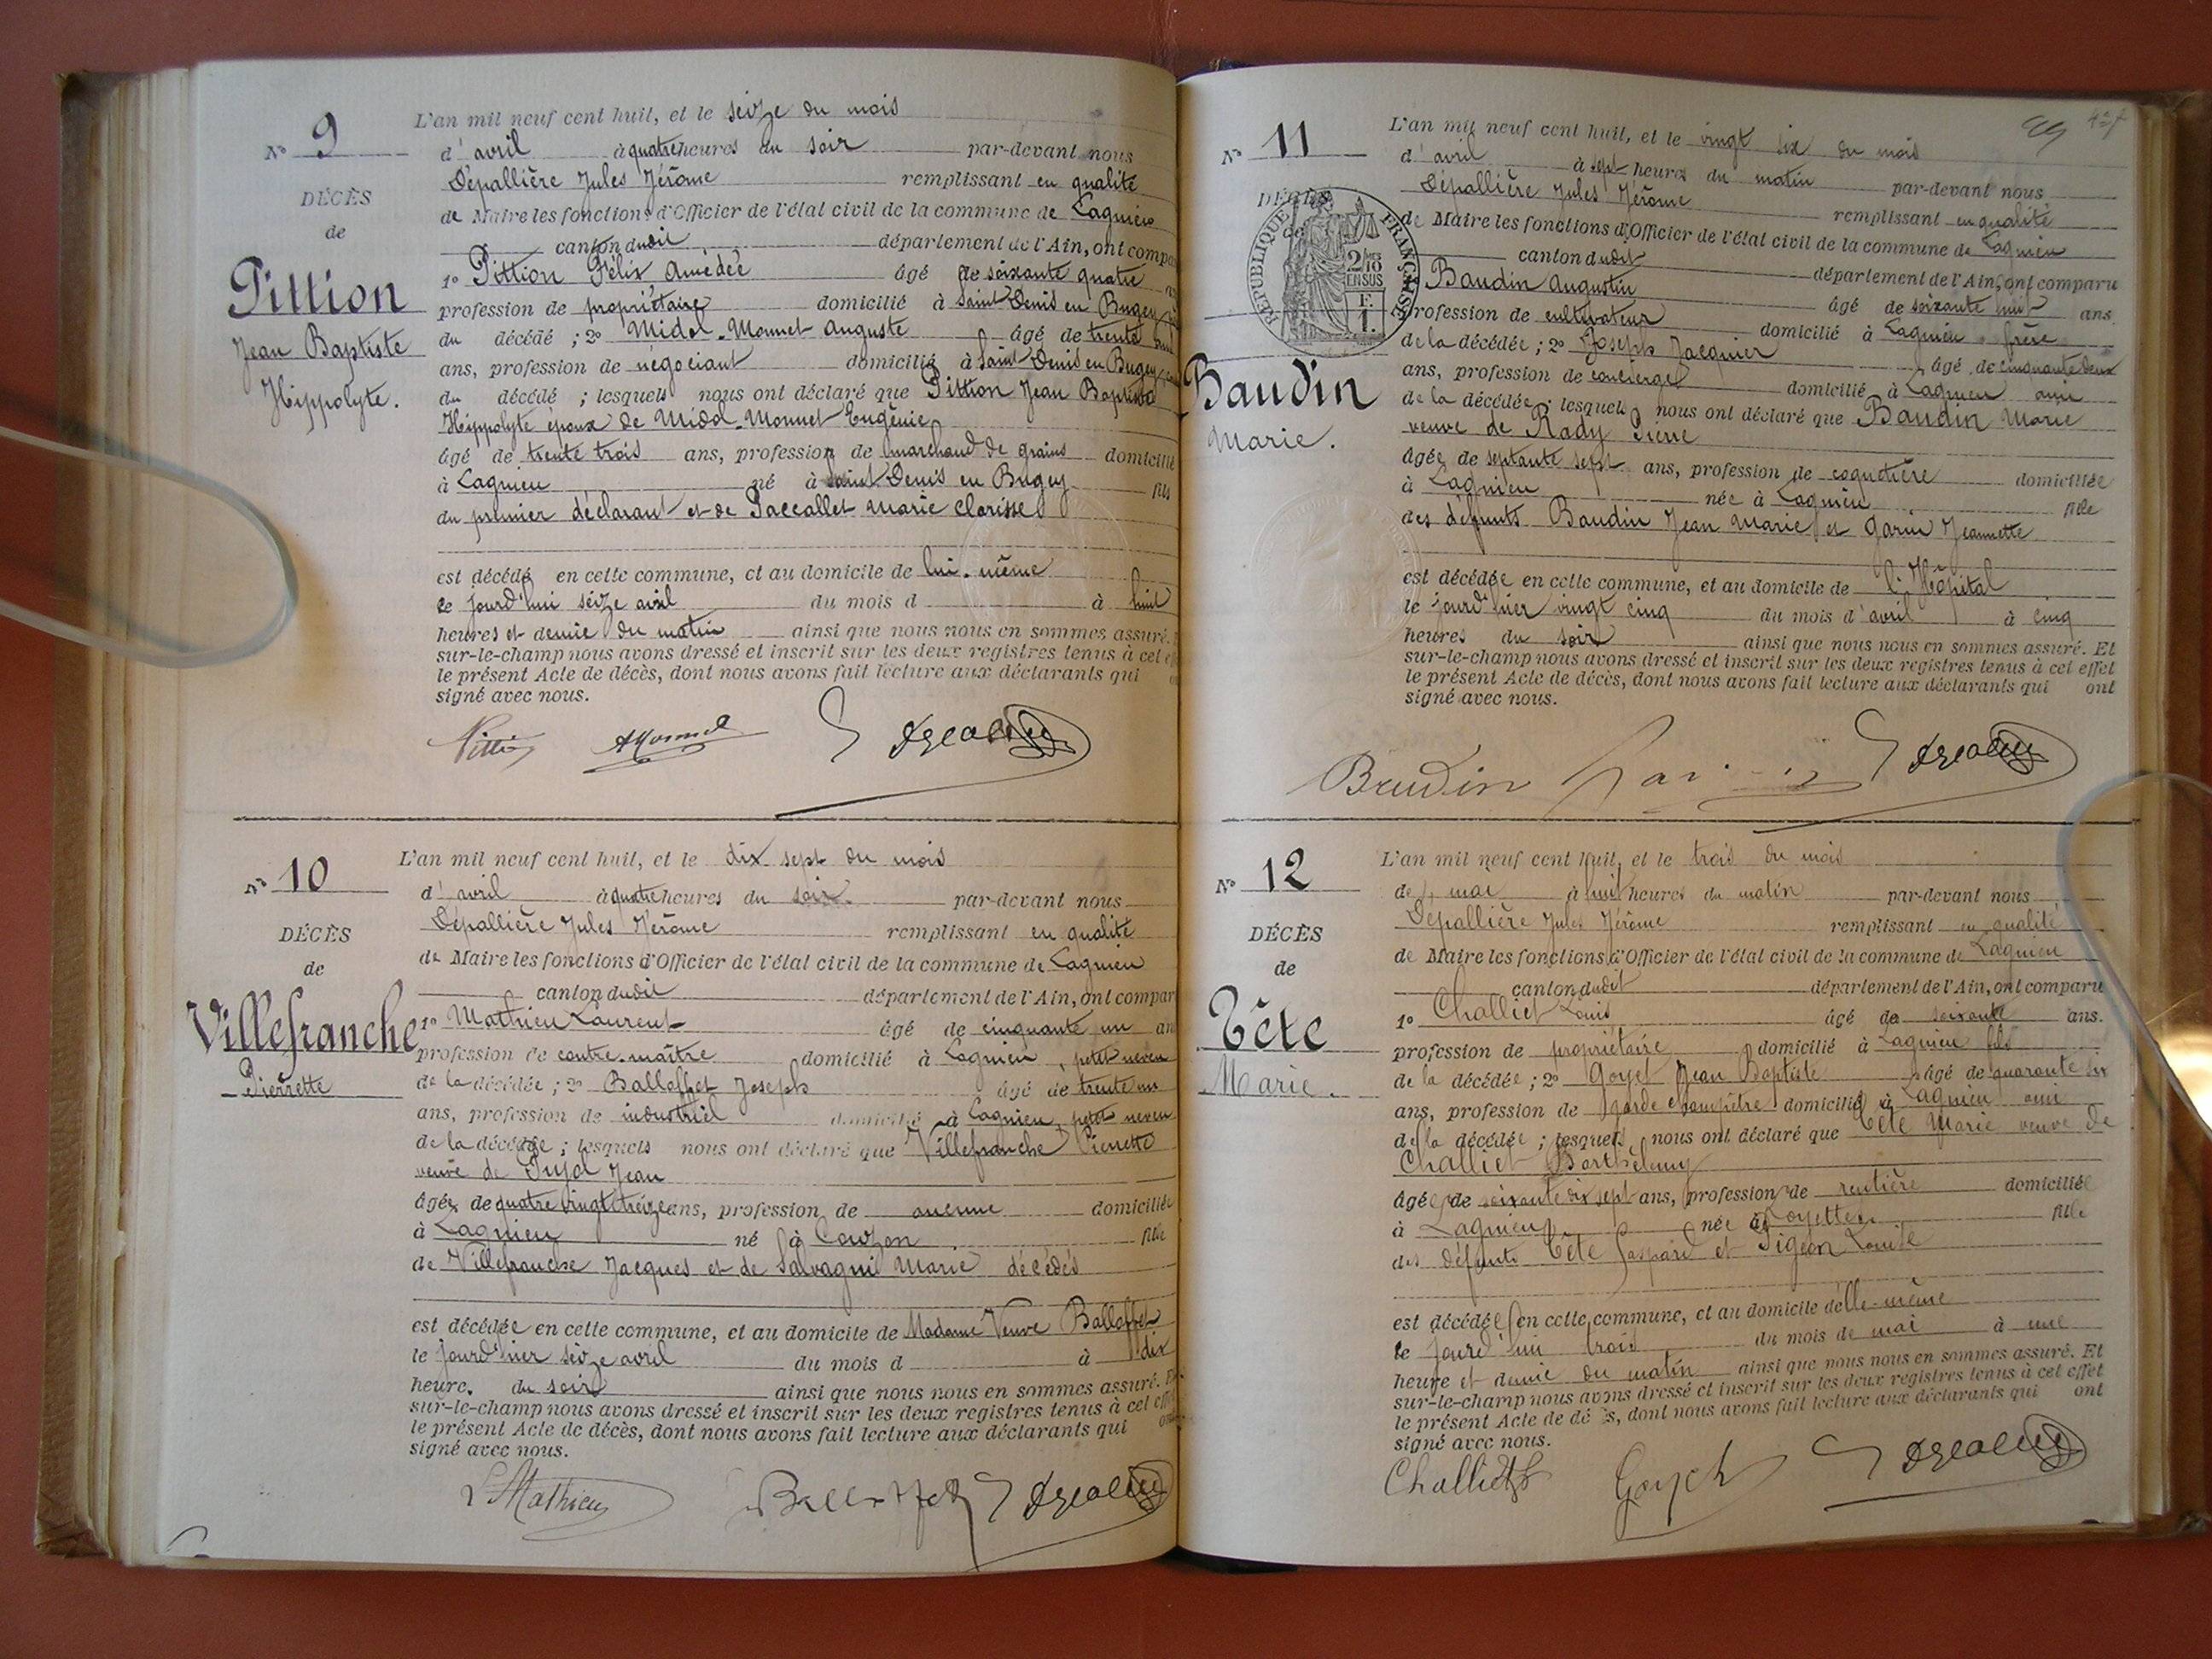 N° 9
DÉCÈS
de
Pittion
Jean Baptiste
Hippolyte.
L'an mil neuf cent huit, et le seize du mois
d'avril à quatre heures du soir par-devant nous
Dépallière Jules Jérôme remplissant en qualité
de Maire les fonctions d'Officier de l'état civil de la commune de Lagnieu
canton dudit département de l'Ain, ont compa
1° Pittion Félix Amédée âgé de soixante quatre
profession de propriétaire domicilié à Saint Denis en Bugey
du décédé ; 2° Midol-Monnet Auguste âgé de trente
ans, profession de négociant domicilié à Saint Denis en Bugey
du décédé ; lesquels nous ont déclaré que Pittion Jean Baptiste
Hippolyte époux de Midol-Monnet Eugénie
âgé de trente trois ans, profession de marchand de grains domicilié
à Lagnieu né à Saint Denis en Bugey fils
du premier déclarant et de Paccallet Marie Clarisse
est décédé en cette commune, et au domicile de lui-même
le jourd'hui seize avril du mois d à huit
heures et demie du matin ainsi que nous nous en sommes assuré.
sur-le-champ nous avons dressé et inscrit sur les deux registres tenus à cet
le présent Acte de décès, dont nous avons fait lecture aux déclarants qui
signé avec nous.
N° 10
DÉCÈS
de
Villefranche
Pierrette
L'an mil neuf cent huit, et le dix sept du mois
d'avril à quatre heures du soir par-devant nous
Dépallière Jules Jérôme remplissant en qualité
de Maire les fonctions d'Officier de l'état civil de la commune de Lagnieu
canton dudit département de l'Ain, ont compar
1° Mathieu Laurent âgé de cinquante un an
profession de contre-maître domicilié à Lagnieu, petit neveu
de la décédée ; 2° Balloffet Joseph âgé de trente un
ans, profession de industriel domicilié à Lagnieu, petit neveu
de la décédée ; lesquels nous ont déclaré que Villefranche Pierrette
veuve de Pujol Jean
âgée de quatre vingt treize ans, profession de aucune domiciliée
à Lagnieu né à Couzon fille
de Villefranche Jacques et de Salvagni Marie décédés
est décédée en cette commune, et au domicile de Madame Veuve Balloffet
le jourd'hier seize avril du mois d à dix
heure. du soir ainsi que nous nous en sommes assuré.
sur-le-champ nous avons dressé et inscrit sur les deux registres tenus à cet
le présent Acte de décès, dont nous avons fait lecture aux déclarants qui
signé avec nous.
L Mathieu Balloffet
N° 11
DÉCÈS
de
RÉPUBLIQUE FRANÇAISE
Baudin
Marie.
L'an mil neuf cent huit, et le vingt six du mois
d'avril à sept heures du matin par-devant nous
Dépallière Jules Jérôme remplissant en qualité
de Maire les fonctions d'Officier de l'état civil de la commune de Lagnieu
canton dudit département de l'Ain, ont comparu
Baudin Augustin âgé de soixante huit ans.
profession de cultivateur domicilié à Lagnieu frère
de la décédée ; 2° Joseph Jacquier âgé de cinquante deux
ans, profession de concierge domicilié à Lagnieu ami
de la décédée ; lesquels nous ont déclaré que Baudin Marie
veuve de Rady Pierre
âgée de septante sept ans, profession de coquetière domiciliée
à Lagnieu née à Lagnieu fille
des défunts Baudin Jean Marie et Garin Jeannette
est décédée en cette commune, et au domicile de l'Hôpital
le jourd'hier vingt cinq du mois d'avril à cinq
heures du soir ainsi que nous nous en sommes assuré. Et
sur-le-champ nous avons dressé et inscrit sur les deux registres tenus à cet effet
le présent Acte de décès, dont nous avons fait lecture aux déclarants qui ont
signé avec nous.
Baudin
N° 12
DÉCÈS
de
Tête
Marie.
L'an mil neuf cent huit, et le trois du mois
de mai à huit heures du matin par-devant nous
Dépallière Jules Jérôme remplissant en qualité
de Maire les fonctions d'Officier de l'état civil de la commune de Lagnieu
canton dudit département de l'Ain, ont comparu
1° Challiet Louis âgé de soixante ans.
profession de propriétaire domicilié à Lagnieu fils
de la décédée ; 2° Goyet Jean Baptiste âgé de quarante six
ans, profession de garde champêtre domicilié à Lagnieu ami
de la décédée ; lesquels nous ont déclaré que Tête Marie veuve de
Challiet Barthélemy
âgée de soixante dix sept ans, profession de rentière domiciliée
à Lagnieu née à Loyettes fille
des défunts Tête Gaspard et Pigeon Louise
est décédée en cette commune, et au domicile d'elle-même
le jourd'hui trois du mois de mai à une
heure et demie du matin ainsi que nous nous en sommes assuré. Et
sur-le-champ nous avons dressé et inscrit sur les deux registres tenus à cet effet
le présent Acte de décès, dont nous avons fait lecture aux déclarants qui ont
signé avec nous.
Challiet